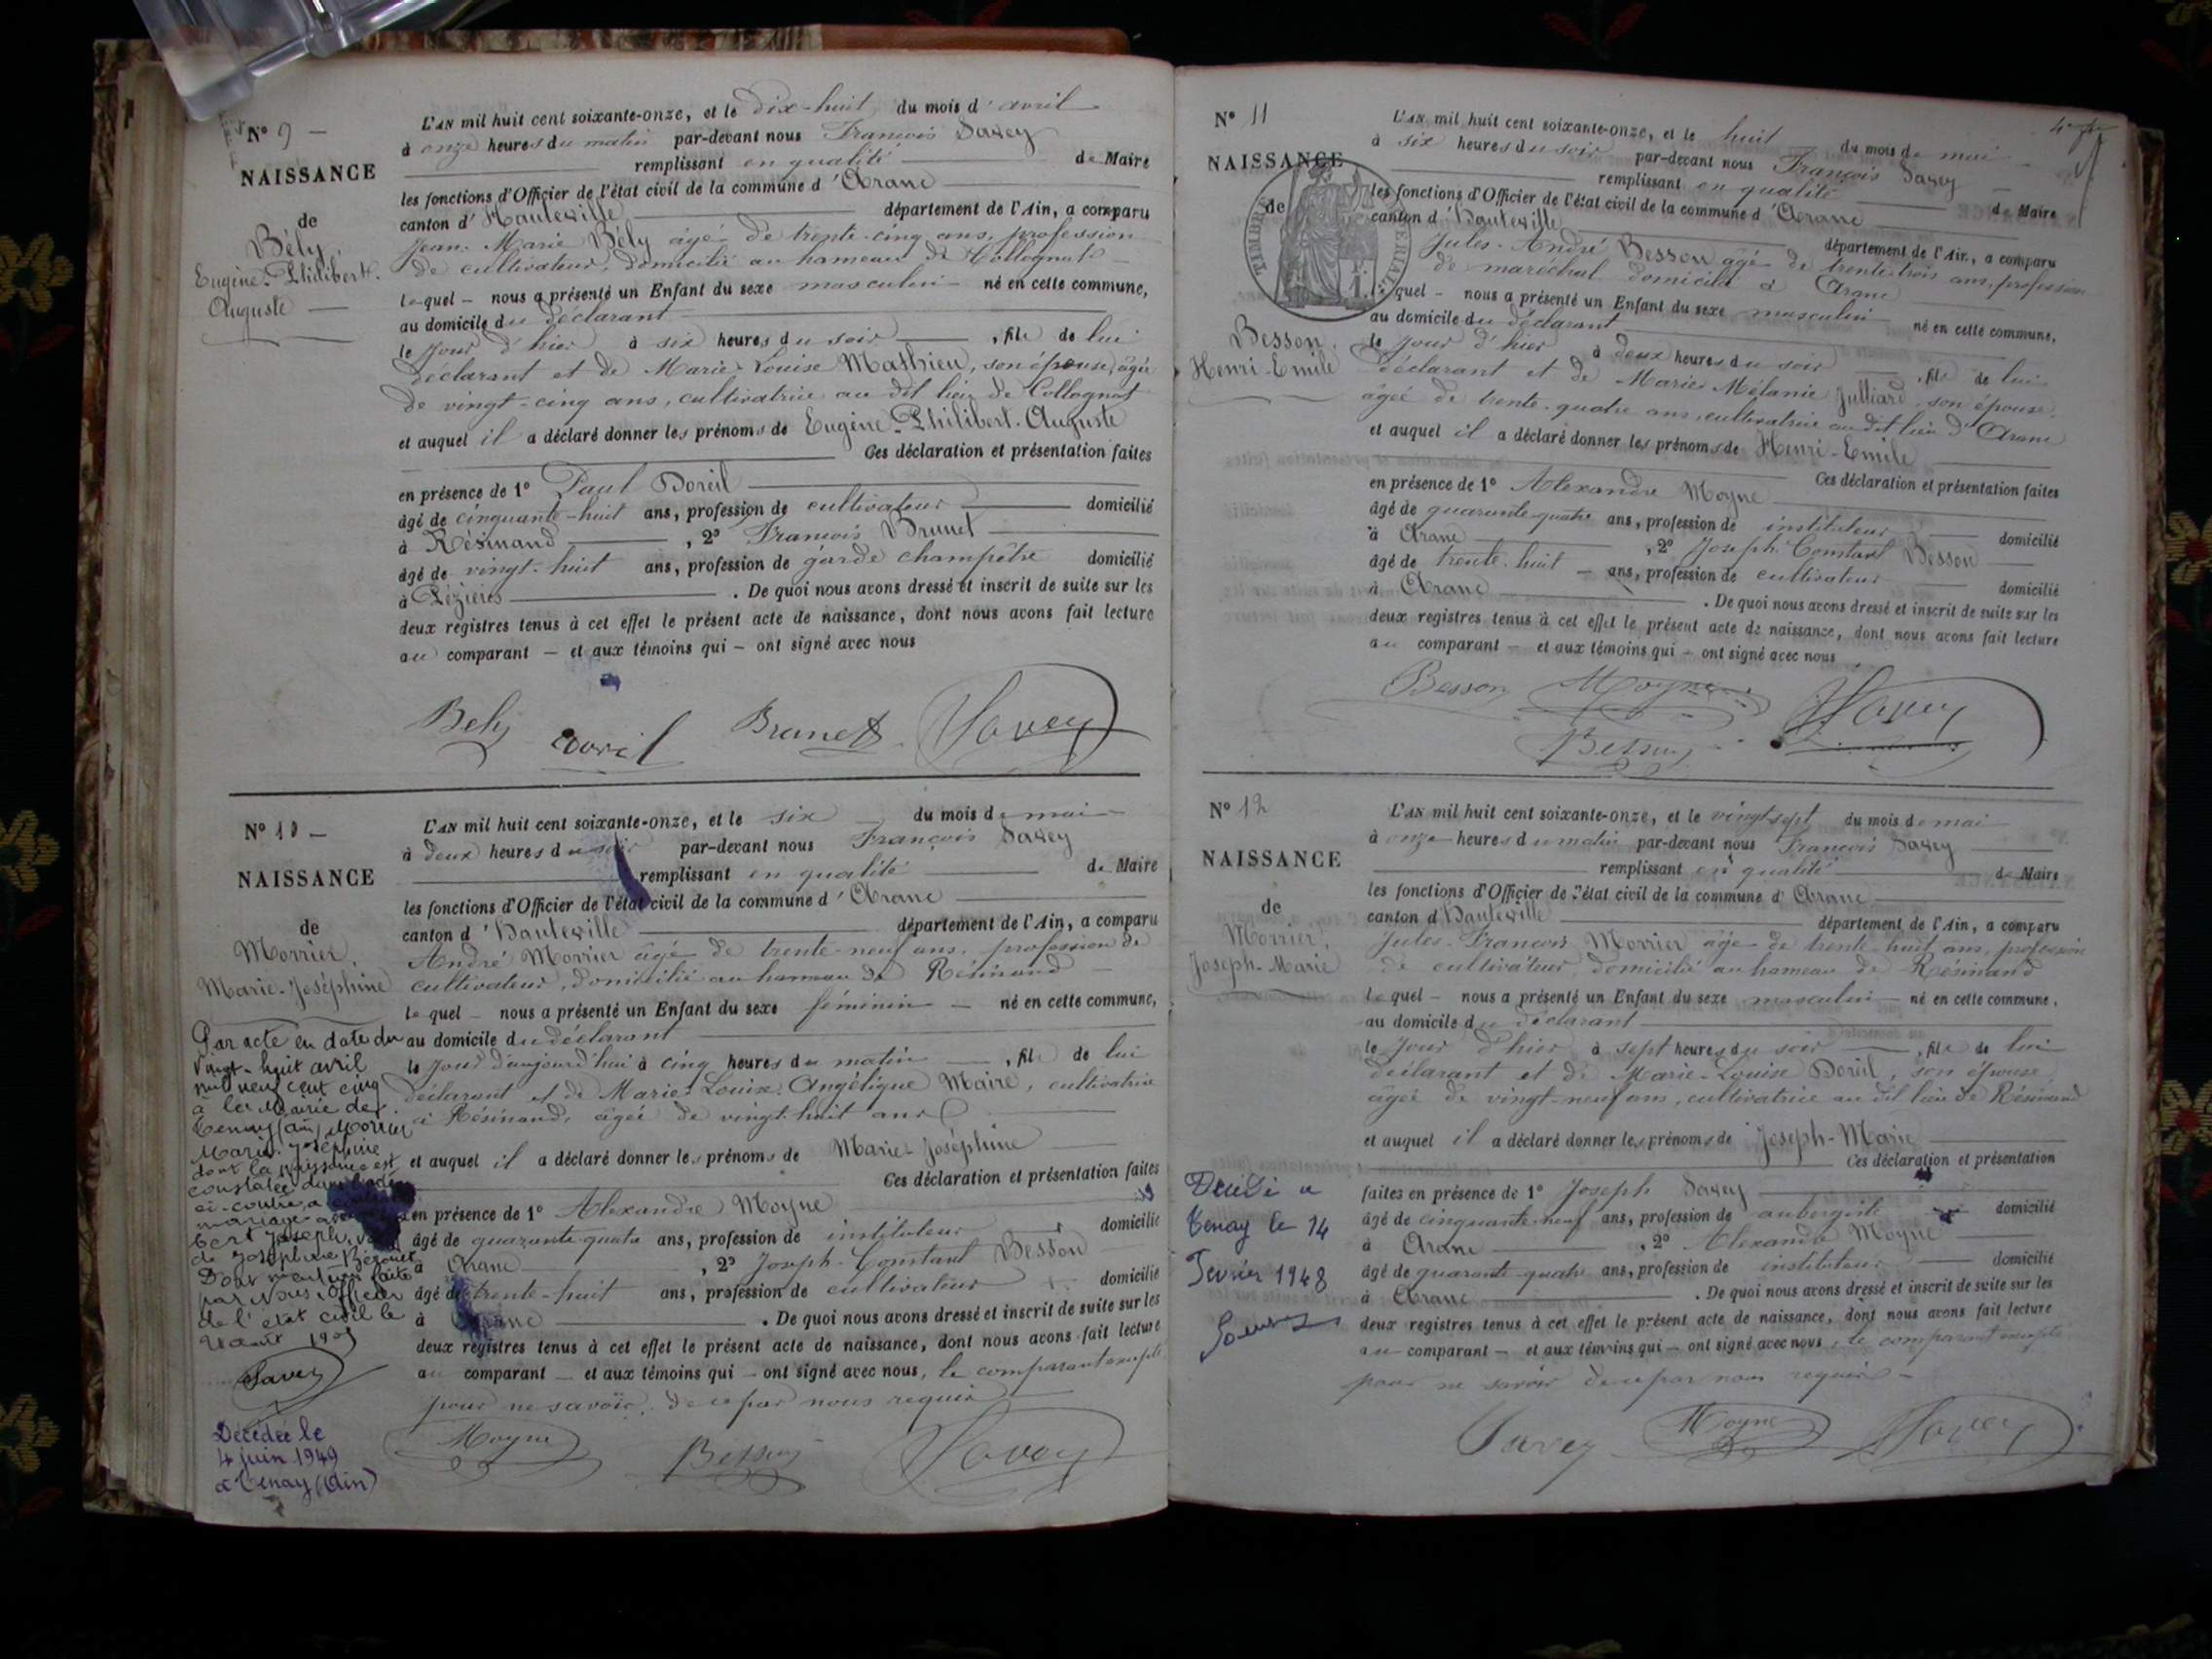 N° 9 —
NAISSANCE
de
Bély,
Eugène-Philibert-
Auguste —
L'AN mil huit cent soixante-onze, et le dix-huit du mois d'avril
à onze heures du matin par-devant nous François Savey
remplissant en qualité de Maire
les fonctions d'Officier de l'état civil de la commune d'Aranc
canton d'Hauteville département de l'Ain, a comparu
Jean-Marie Bély âgé de trente-cinq ans, profession
de cultivateur, domicilié au hameau de Collognat
lequel — nous a présenté un Enfant du sexe masculin né en cette commune,
au domicile du déclarant
le jour d'hier à six heures du soir, fils de lui
déclarant et de Marie-Louise Mathieu, son épouse, âgée
de vingt-cinq ans, cultivatrice au dit lieu de Collognat
et auquel il a déclaré donner les prénoms de Eugène-Philibert-Auguste
Ces déclaration et présentation faites
en présence de 1° Paul Doreil
âgé de cinquante-huit ans, profession de cultivateur domicilié
à Résinand, 2° François Brunet
âgé de vingt-huit ans, profession de garde champêtre domicilié
à Pézières. De quoi nous avons dressé et inscrit de suite sur les
deux registres tenus à cet effet le présent acte de naissance, dont nous avons fait lecture
au comparant — et aux témoins qui — ont signé avec nous
Bely Brunet Savey
N° 10 —
NAISSANCE
de
Morrier,
Marie-Joséphine
L'AN mil huit cent soixante-onze, et le six du mois de mai
à deux heures du soir par-devant nous François Savey
remplissant en qualité de Maire
les fonctions d'Officier de l'état civil de la commune d'Aranc
canton d'Hauteville département de l'Ain, a comparu
André Morrier âgé de trente-neuf ans, profession de
cultivateur, domicilié au hameau de Résinand
lequel — nous a présenté un Enfant du sexe féminin — né en cette commune,
au domicile du déclarant
le jour d'aujourd'hui à cinq heures du matin, fille de lui
déclarant et de Marie-Louise-Angélique Maire, cultivatrice
à Résinand, âgée de vingt-huit ans
et auquel il a déclaré donner les prénoms de Marie-Joséphine
Ces déclaration et présentation faites
en présence de 1° Alexandre Moyne
âgé de quarante-quatre ans, profession de instituteur domicilié
à Aranc, 2° Joseph-Constant Besson
âgé de trente-huit ans, profession de cultivateur domicilié
à Aranc. De quoi nous avons dressé et inscrit de suite sur les
deux registres tenus à cet effet le présent acte de naissance, dont nous avons fait lecture
au comparant — et aux témoins qui — ont signé avec nous, le comparant excepté
pour ne savoir, de ce par nous requis
Moyne Besson Savey
Par acte en date du
vingt-huit avril
mil neuf cent cinq
à la Mairie de
Tenay (Ain) Morrier
Marie Joséphine
dont la naissance est
constatée dans l'acte
ci-contre, a
mariage avec
Joseph,
de Joséphine
Dont mention faite
par Nous Officier
de l'état civil le
août 1905
Savey
Décédée le
4 juin 1949
à Tenay (Ain)
N° 11
NAISSANCE
de
TIMBRE
Besson,
Henri-Emile
L'AN mil huit cent soixante-onze, et le huit du mois de mai
à six heures du soir par-devant nous François Savey
remplissant en qualité de Maire
les fonctions d'Officier de l'état civil de la commune d'Aranc
canton d'Hauteville département de l'Ain, a comparu
Jules-André Besson âgé de trente-trois ans, profession
de maréchal domicilié à Aranc
lequel — nous a présenté un Enfant du sexe masculin né en cette commune,
au domicile du déclarant
le jour d'hier à deux heures du soir, fils de lui
déclarant et de Marie-Mélanie Julliard, son épouse,
âgée de trente-quatre ans, cultivatrice au dit lieu d'Aranc
et auquel il a déclaré donner les prénoms de Henri-Emile
Ces déclaration et présentation faites
en présence de 1° Alexandre Moyne
âgé de quarante-quatre ans, profession de instituteur domicilié
à Aranc, 2° Joseph-Constant Besson
âgé de trente-huit — ans, profession de cultivateur domicilié
à Aranc. De quoi nous avons dressé et inscrit de suite sur les
deux registres tenus à cet effet le présent acte de naissance, dont nous avons fait lecture
au comparant — et aux témoins qui — ont signé avec nous
Besson Moyne Savey
Besson
N° 12
NAISSANCE
de
Morrier,
Joseph-Marie
L'AN mil huit cent soixante-onze, et le vingt-sept du mois de mai
à onze heures du matin par-devant nous François Savey
remplissant en qualité de Maire
les fonctions d'Officier de l'état civil de la commune d'Aranc
canton d'Hauteville département de l'Ain, a comparu
Jules-François Morrier âgé de trente-huit ans, profession
de cultivateur domicilié au hameau de Résinand
lequel — nous a présenté un Enfant du sexe masculin — né en cette commune,
au domicile du déclarant
le jour d'hier à sept heures du soir, fils de lui
déclarant et de Marie-Louise Doreil, son épouse,
âgée de vingt-neuf ans, cultivatrice au dit lieu de Résinand
et auquel il a déclaré donner les prénoms de Joseph-Marie
Ces déclaration et présentation
faites en présence de 1° Joseph Savey
âgé de cinquante-neuf ans, profession de aubergiste domicilié
à Aranc, 2° Alexandre Moyne
âgé de quarante-quatre ans, profession de instituteur domicilié
à Aranc. De quoi nous avons dressé et inscrit de suite sur les
deux registres tenus à cet effet le présent acte de naissance, dont nous avons fait lecture
au comparant — et aux témoins qui — ont signé avec nous, le comparant excepté
pour ne savoir de ce par nous requis —
Savey Moyne Savey
Décédé à
Tenay le 14
Février 1948